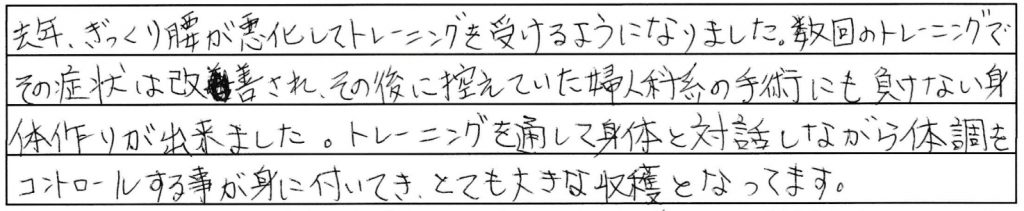 去年、ぎっくり腰が悪化してトレーニングを受けるようになりました。数回のトレーニングで
その症状は改善され、その後に控えていた婦人科系の手術にも負けない身
体作りが出来ました。トレーニングを通して身体と対話しながら体調を
コントロールする事が身に付いてき、とても大きな収穫となってます。